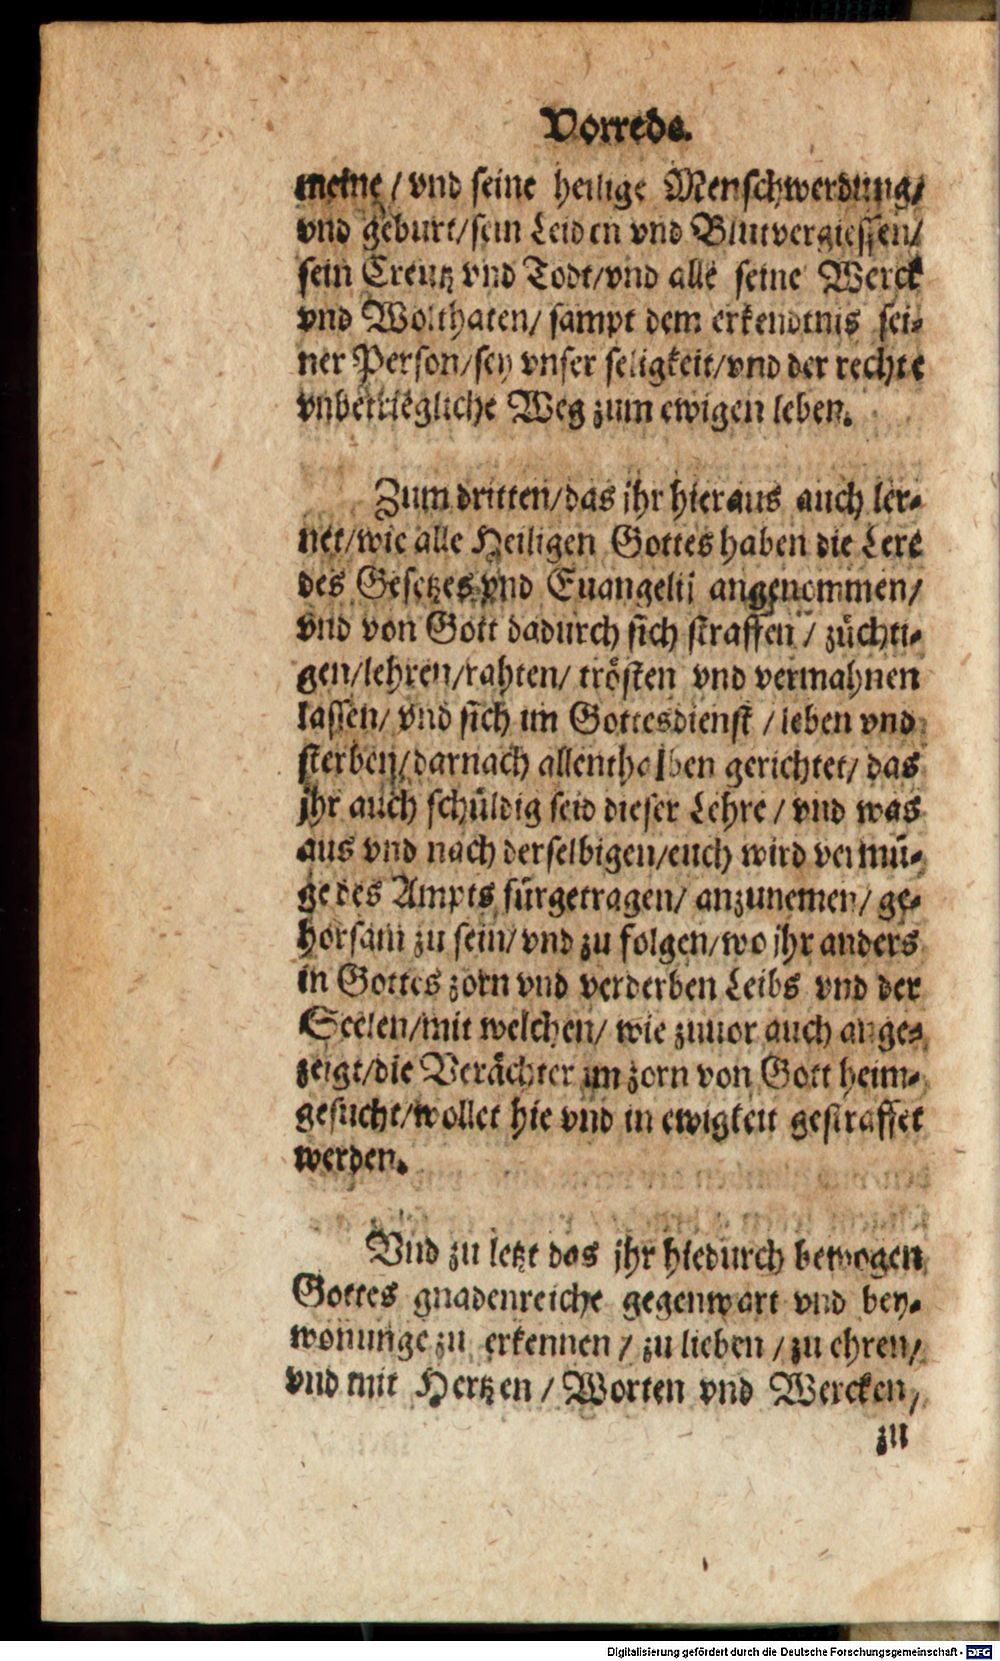 Vorrede.
meine / vnd seine heilige Menschwerdung/
vnd geburt/sein Leiden vnd Blutvergiessen/
sein Creutz vnd Todt/vnd alle seine Werck
vnd Wolthaten/ sampt dem erkendtnis sei-
ner Person/sey vnser seligkeit/vnd der rechte
vnbetriegliche Weg zum ewigen leben.
Zum dritten/das jhr hieraus auch ler-
net/wie alle Heiligen Gottes haben die Lere
des Gesetzes vnd Euangelij angenommen/
vnd von Gott dadurch sich straffen / züchti-
gen/lehren/rahten/ trösten vnd vermahnen
lassen/ vnd sich im Gottesdienst / leben vnd
sterben/darnach allenthalben gerichtet/ das
jhr auch schüldig seid dieser Lehre / vnd was
aus vnd nach derselbigen/euch wird vermü-
ge des Ampts fürgetragen/ anzunemen/ ge-
horsam zu sein/ vnd zu folgen/wo jhr anders
in Gottes zorn vnd verderben Leibs vnd der
Seelen/mit welchen/ wie zuuor auch ange-
zeigt/die Verächter im zorn von Gott heim-
gesucht/wollet hie vnd in ewigkeit gestraffet
werden.
Vnd zu letzt das jhr hiedurch bewogen
Gottes gnadenreiche gegenwart vnd bey-
wonunge zu erkennen / zu lieben / zu ehren/
vnd mit Hertzen / Worten vnd Wercken/
zu
Digitalisierung gefördert durch die Deutsche Forschungsgemeinschaft - DFG